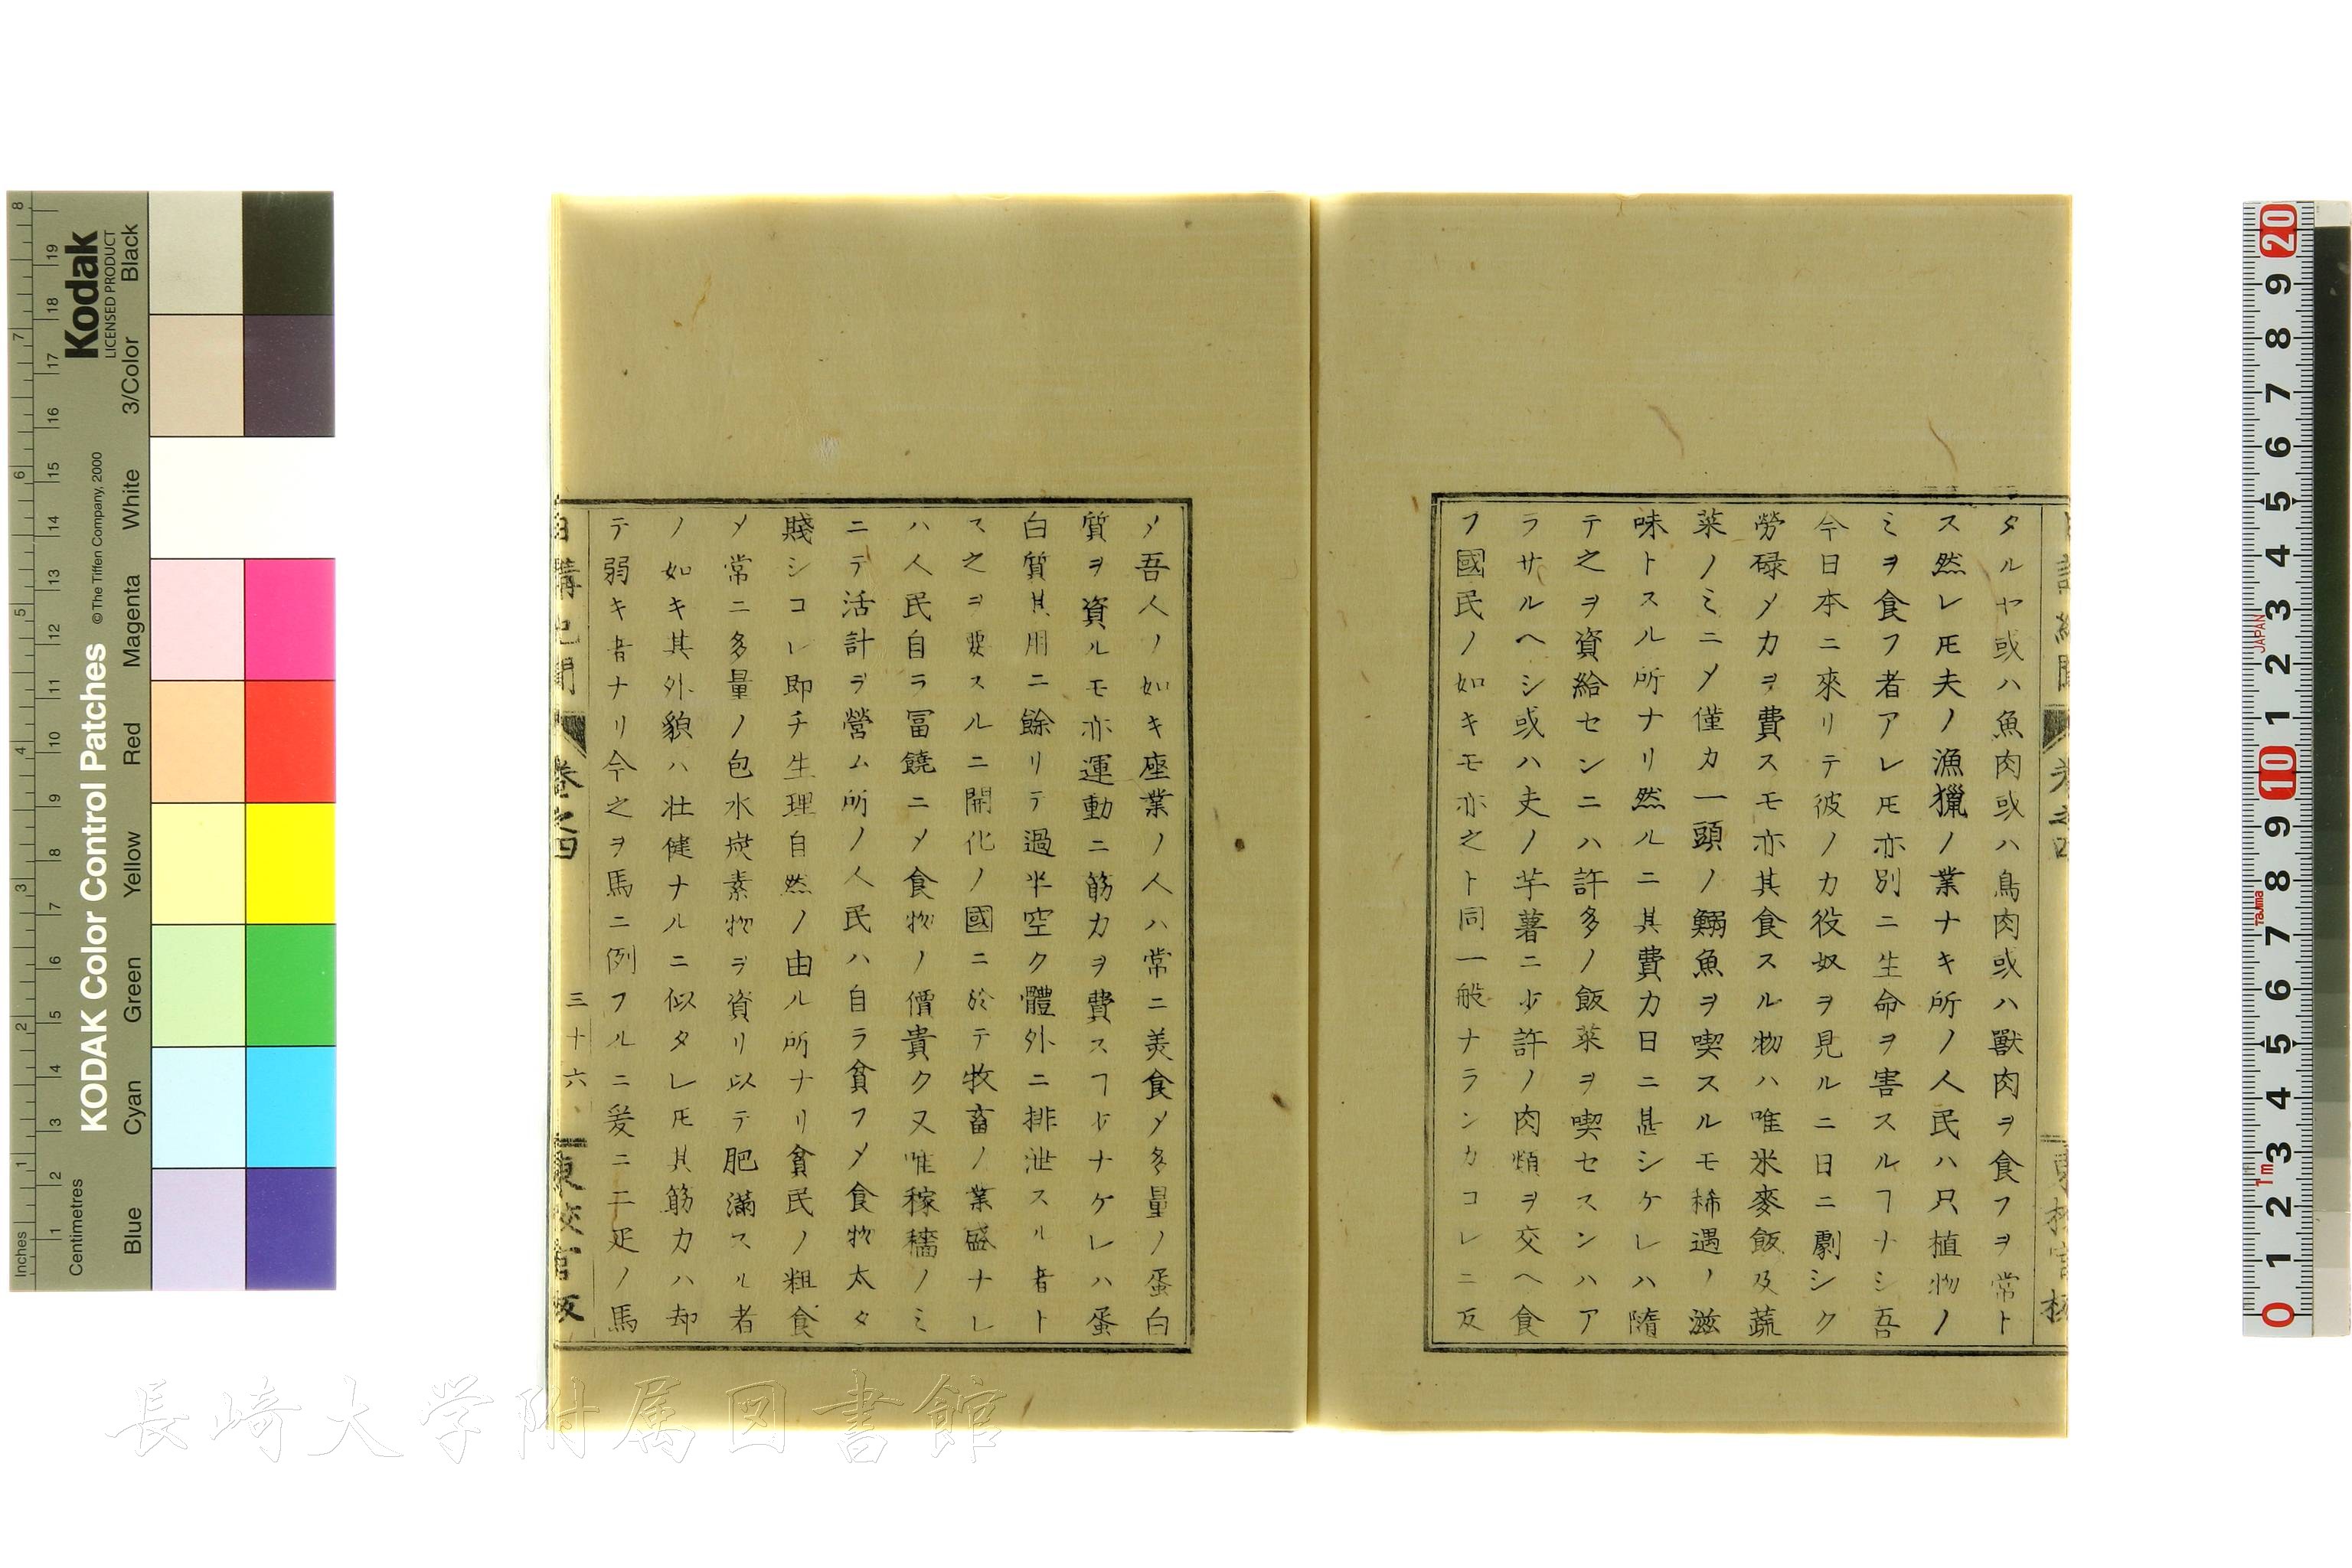 タルヤ或ハ魚肉或ハ鳥肉或ハ獸肉ヲ食フヲ常ト
ス然レ𪜈夫ノ漁獵ノ業ナキ所ノ人民ハ只植物ノ
ミヲ食フ者アレ𪜈亦別ニ生命ヲ害スルヿナシ吾
今日本ニ來リテ彼ノカ役奴ヲ見ルニ日ニ劇シク
勞碌〆力ヲ費スモ亦其食スル物ハ唯米麥飯及蔬
菜ノミニ〆僅カ一頭ノ鰯魚ヲ喫スルモ稀遇ノ滋
味トスル所ナリ然ルニ其費力日ニ甚シケレハ隨
テ之ヲ資給センニハ許多ノ飯菜ヲ喫セスンハア
ラサルヘシ或ハ夫ノ芋薯ニ少許ノ肉類ヲ交ヘ食
フ國民ノ如キモ亦之ト同一般ナランカコレニ反
〆吾人ノ如キ座業ノ人ハ常ニ美食〆多量ノ蛋白
質ヲ資ルモ亦運動ニ筋力ヲ費スヿ少ナケレハ蛋
白質其用ニ餘リテ過半空ク體外ニ排泄スル者ト
ス之ヲ要スルニ開化ノ國ニ於テ牧畜ノ業盛ナレ
ハ人民自ラ冨饒ニ〆食物ノ價貴ク又唯稼穡ノミ
ニテ活計ヲ營ム所ノ人民ハ自ラ貧フ〆食物太タ
賤シコレ即チ生理自然ノ由ル所ナリ貧民ノ粗食
〆常ニ多量ノ包水炭素物ヲ資リ以テ肥滿スル者
ノ如キ其外貌ハ壮健ナルニ似タレ𪜈其筋力ハ却
テ弱キ者ナリ今之ヲ馬ニ例フルニ爰ニ二疋ノ馬
日講記聞 卷之四 三十六
長崎大学附属図書館
Kodak
LICENSED PRODUCT
KODAK Color Control Patches
© The Tiffen Company, 2000
Inches
Centimetres
Blue Cyan Green Yellow Red Magenta White 3/Color Black
1 2 3 4 5 6 7 8
1 2 3 4 5 6 7 8 9 10 11 12 13 14 15 16 17 18 19
20 9 8 7 6 5 4 3 2 1 10 9 8 7 6 5 4 3 2 1 0
JAPAN
Tajima
1m